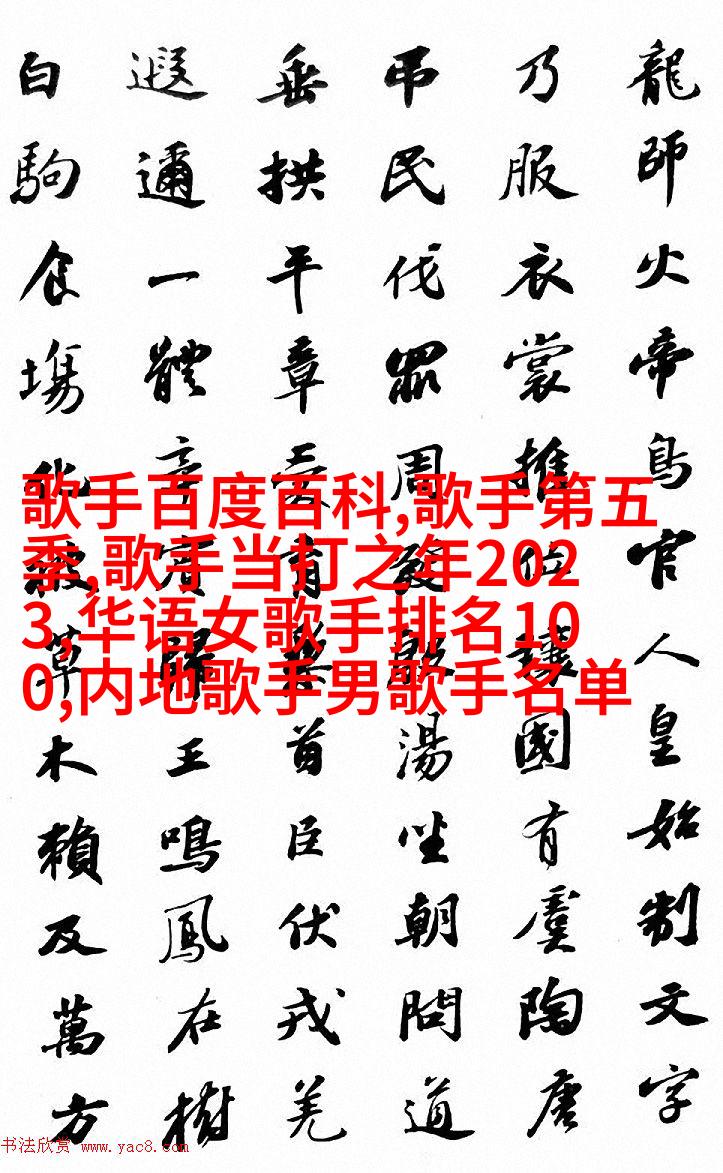 龍師火帝鳥官人皇始制文字
乃服衣裳推位讓國有虞陶唐
吊民伐罪周發殷湯坐朝問道
垂拱平章愛育黎首臣伏戎羌
遐邇一體率賓歸王鳴鳳在樹
白駒食塲化被草木賴及萬方
歌手百度百科,歌手第五
季,歌手当打之年202
3,华语女歌手排名10
0,内地歌手男歌手名单
书法欣赏 www.yac8.com